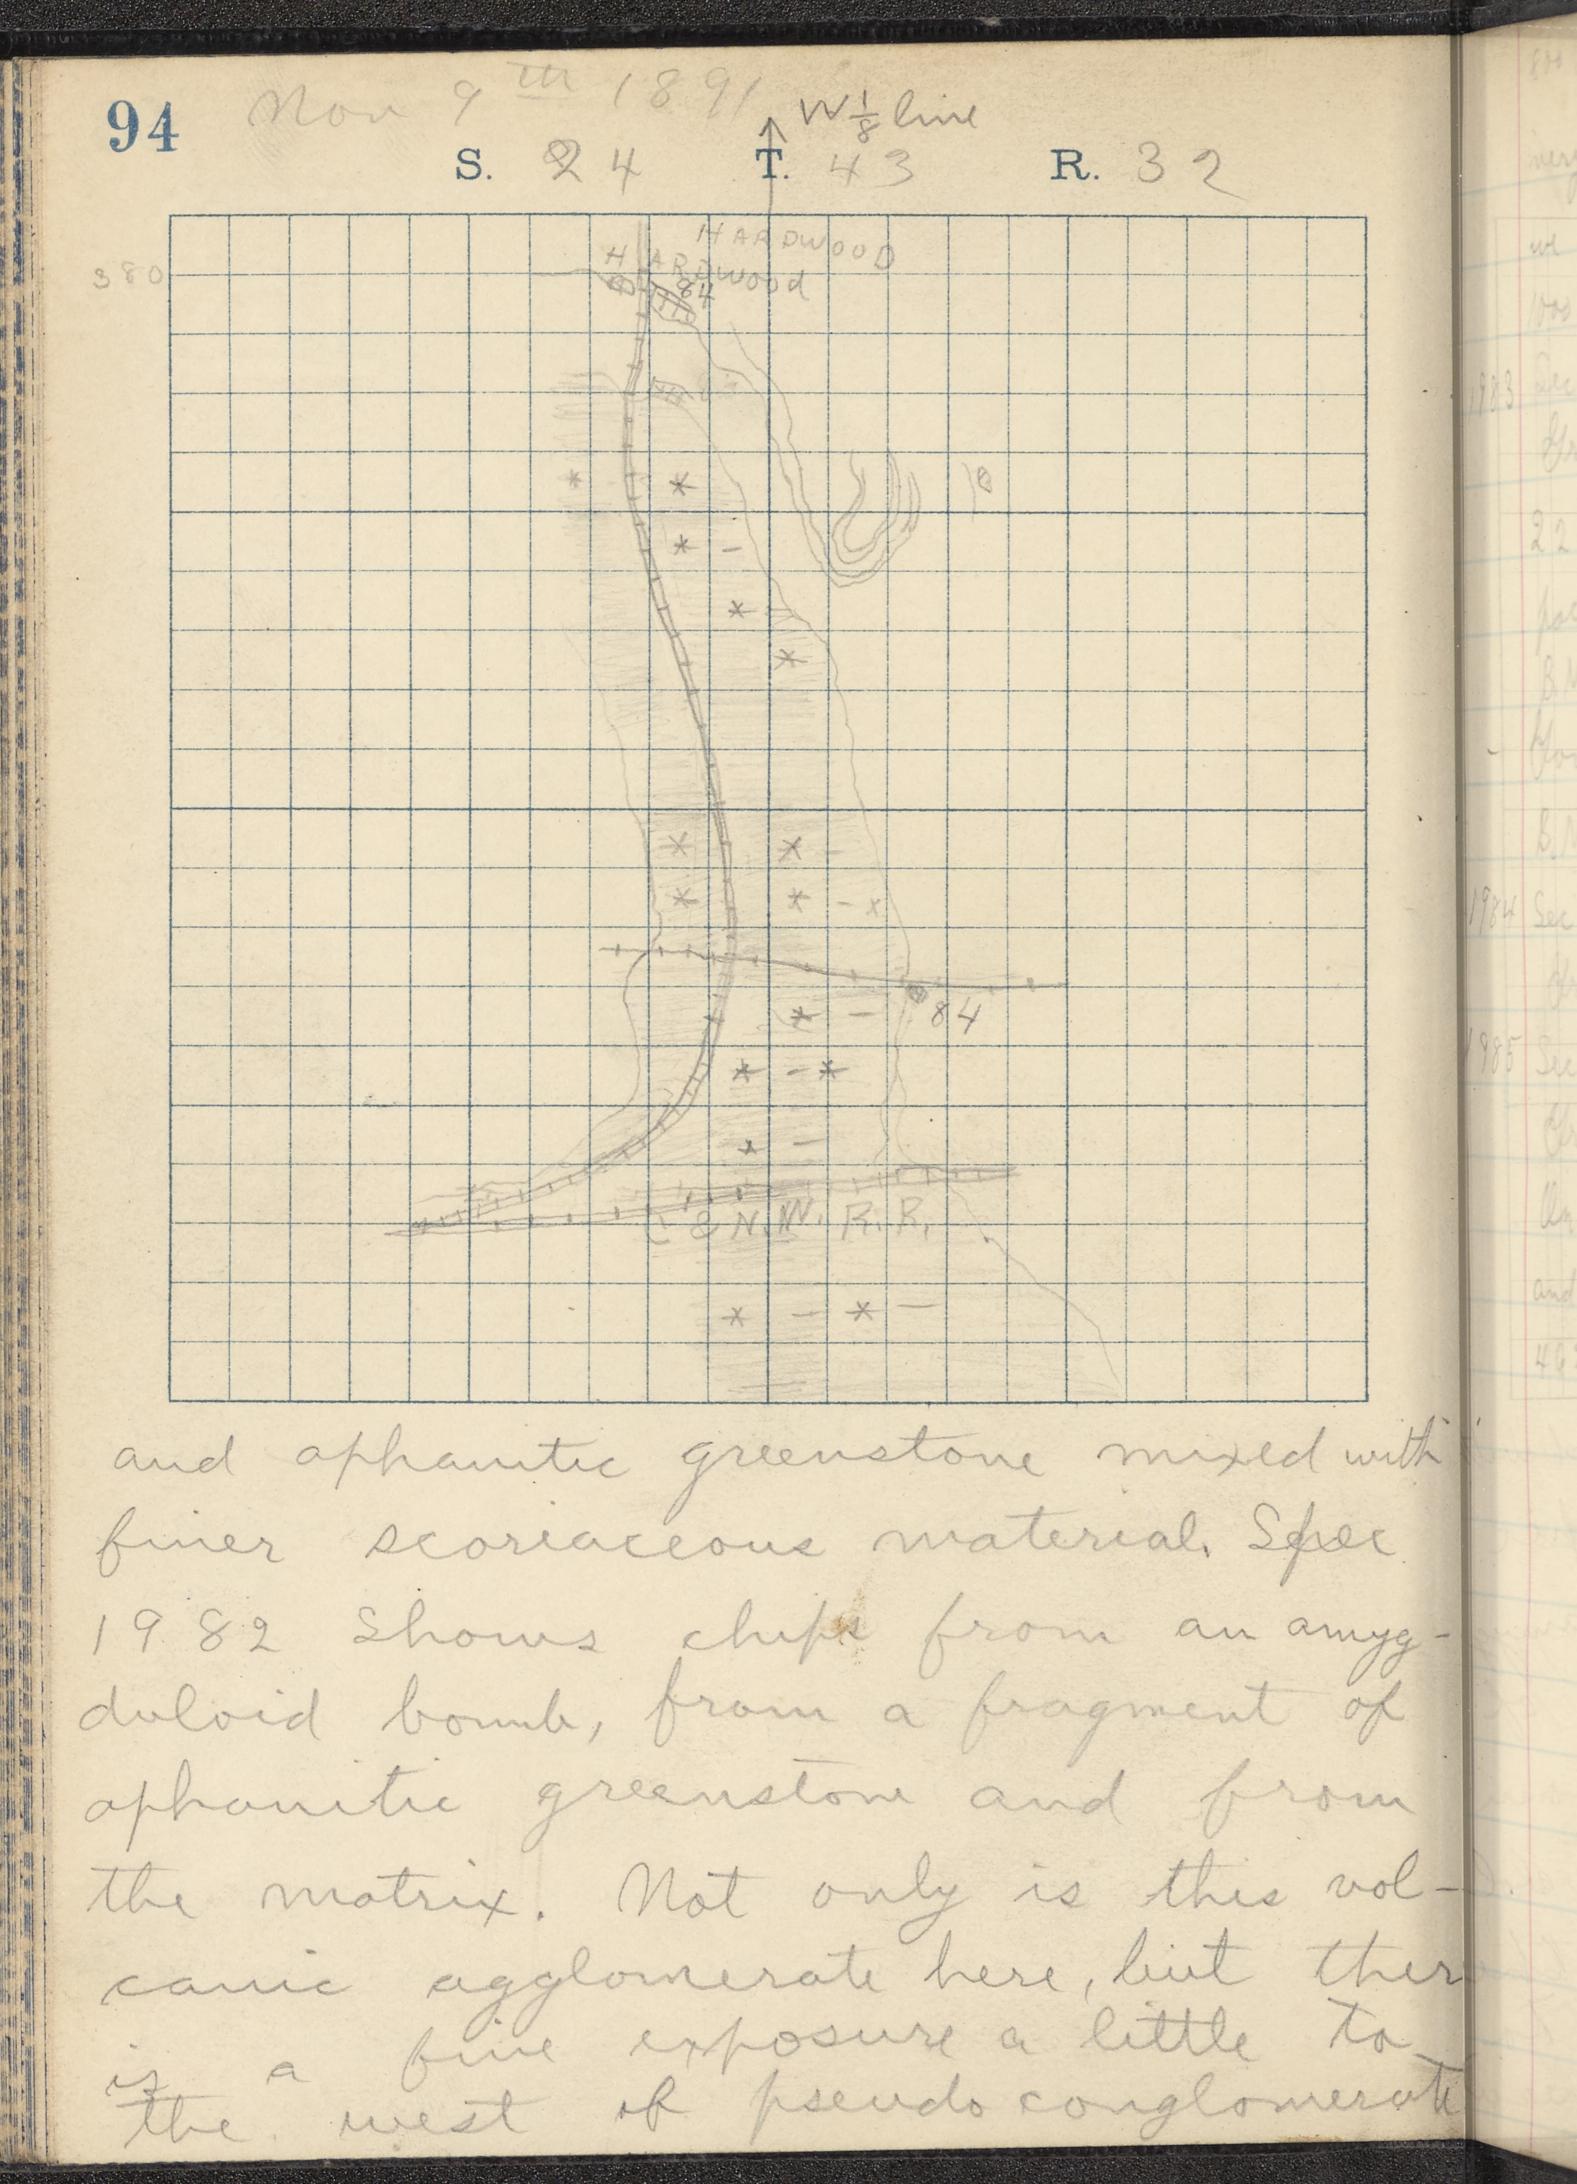 94 Nov 9th 1891
W 1/8 line
S. 24 T. 43 R. 32
HARDWOOD
HARDWOOD
380
84
84
C & N. W. R. R.
and aphanitic greenstone mixed with
finer scoriaceous material. Spec
1982 shows chips from an amyg-
duloid bomb, from a fragment of
aphanitic greenstone and from
the matrix. Not only is this vol-
canic agglomerate here, but ther
is a fine exposure a little to
the west of pseudo conglomerate
1983
22
1984 Sec
1985 Sec
and